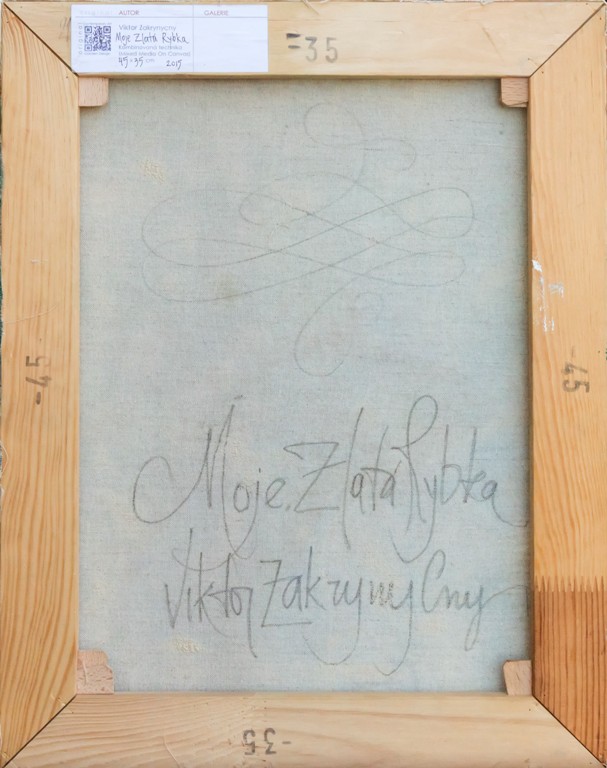 AUTOR GALERIE
original
Viktor Zakrymycny
Moje Zlatá Rybka
Kombinovaná technika
(mixed Media On Canvas)
45×35 cm 2015
-35
-45
45
Moje. Zlatá Rybka
Viktor Zakrymycny
-35